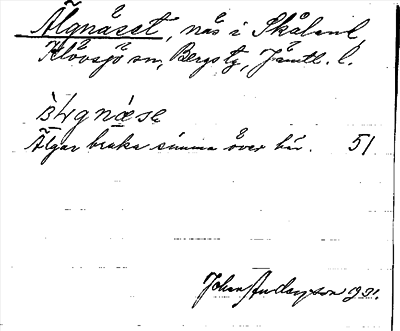 Älgnäset, näs i Skåland,
Klövsjö sn, Bergs tg, Jämtl. l.
ælgnæse
Älgar bruka simma över här. 51
Johan Anderson 1921.